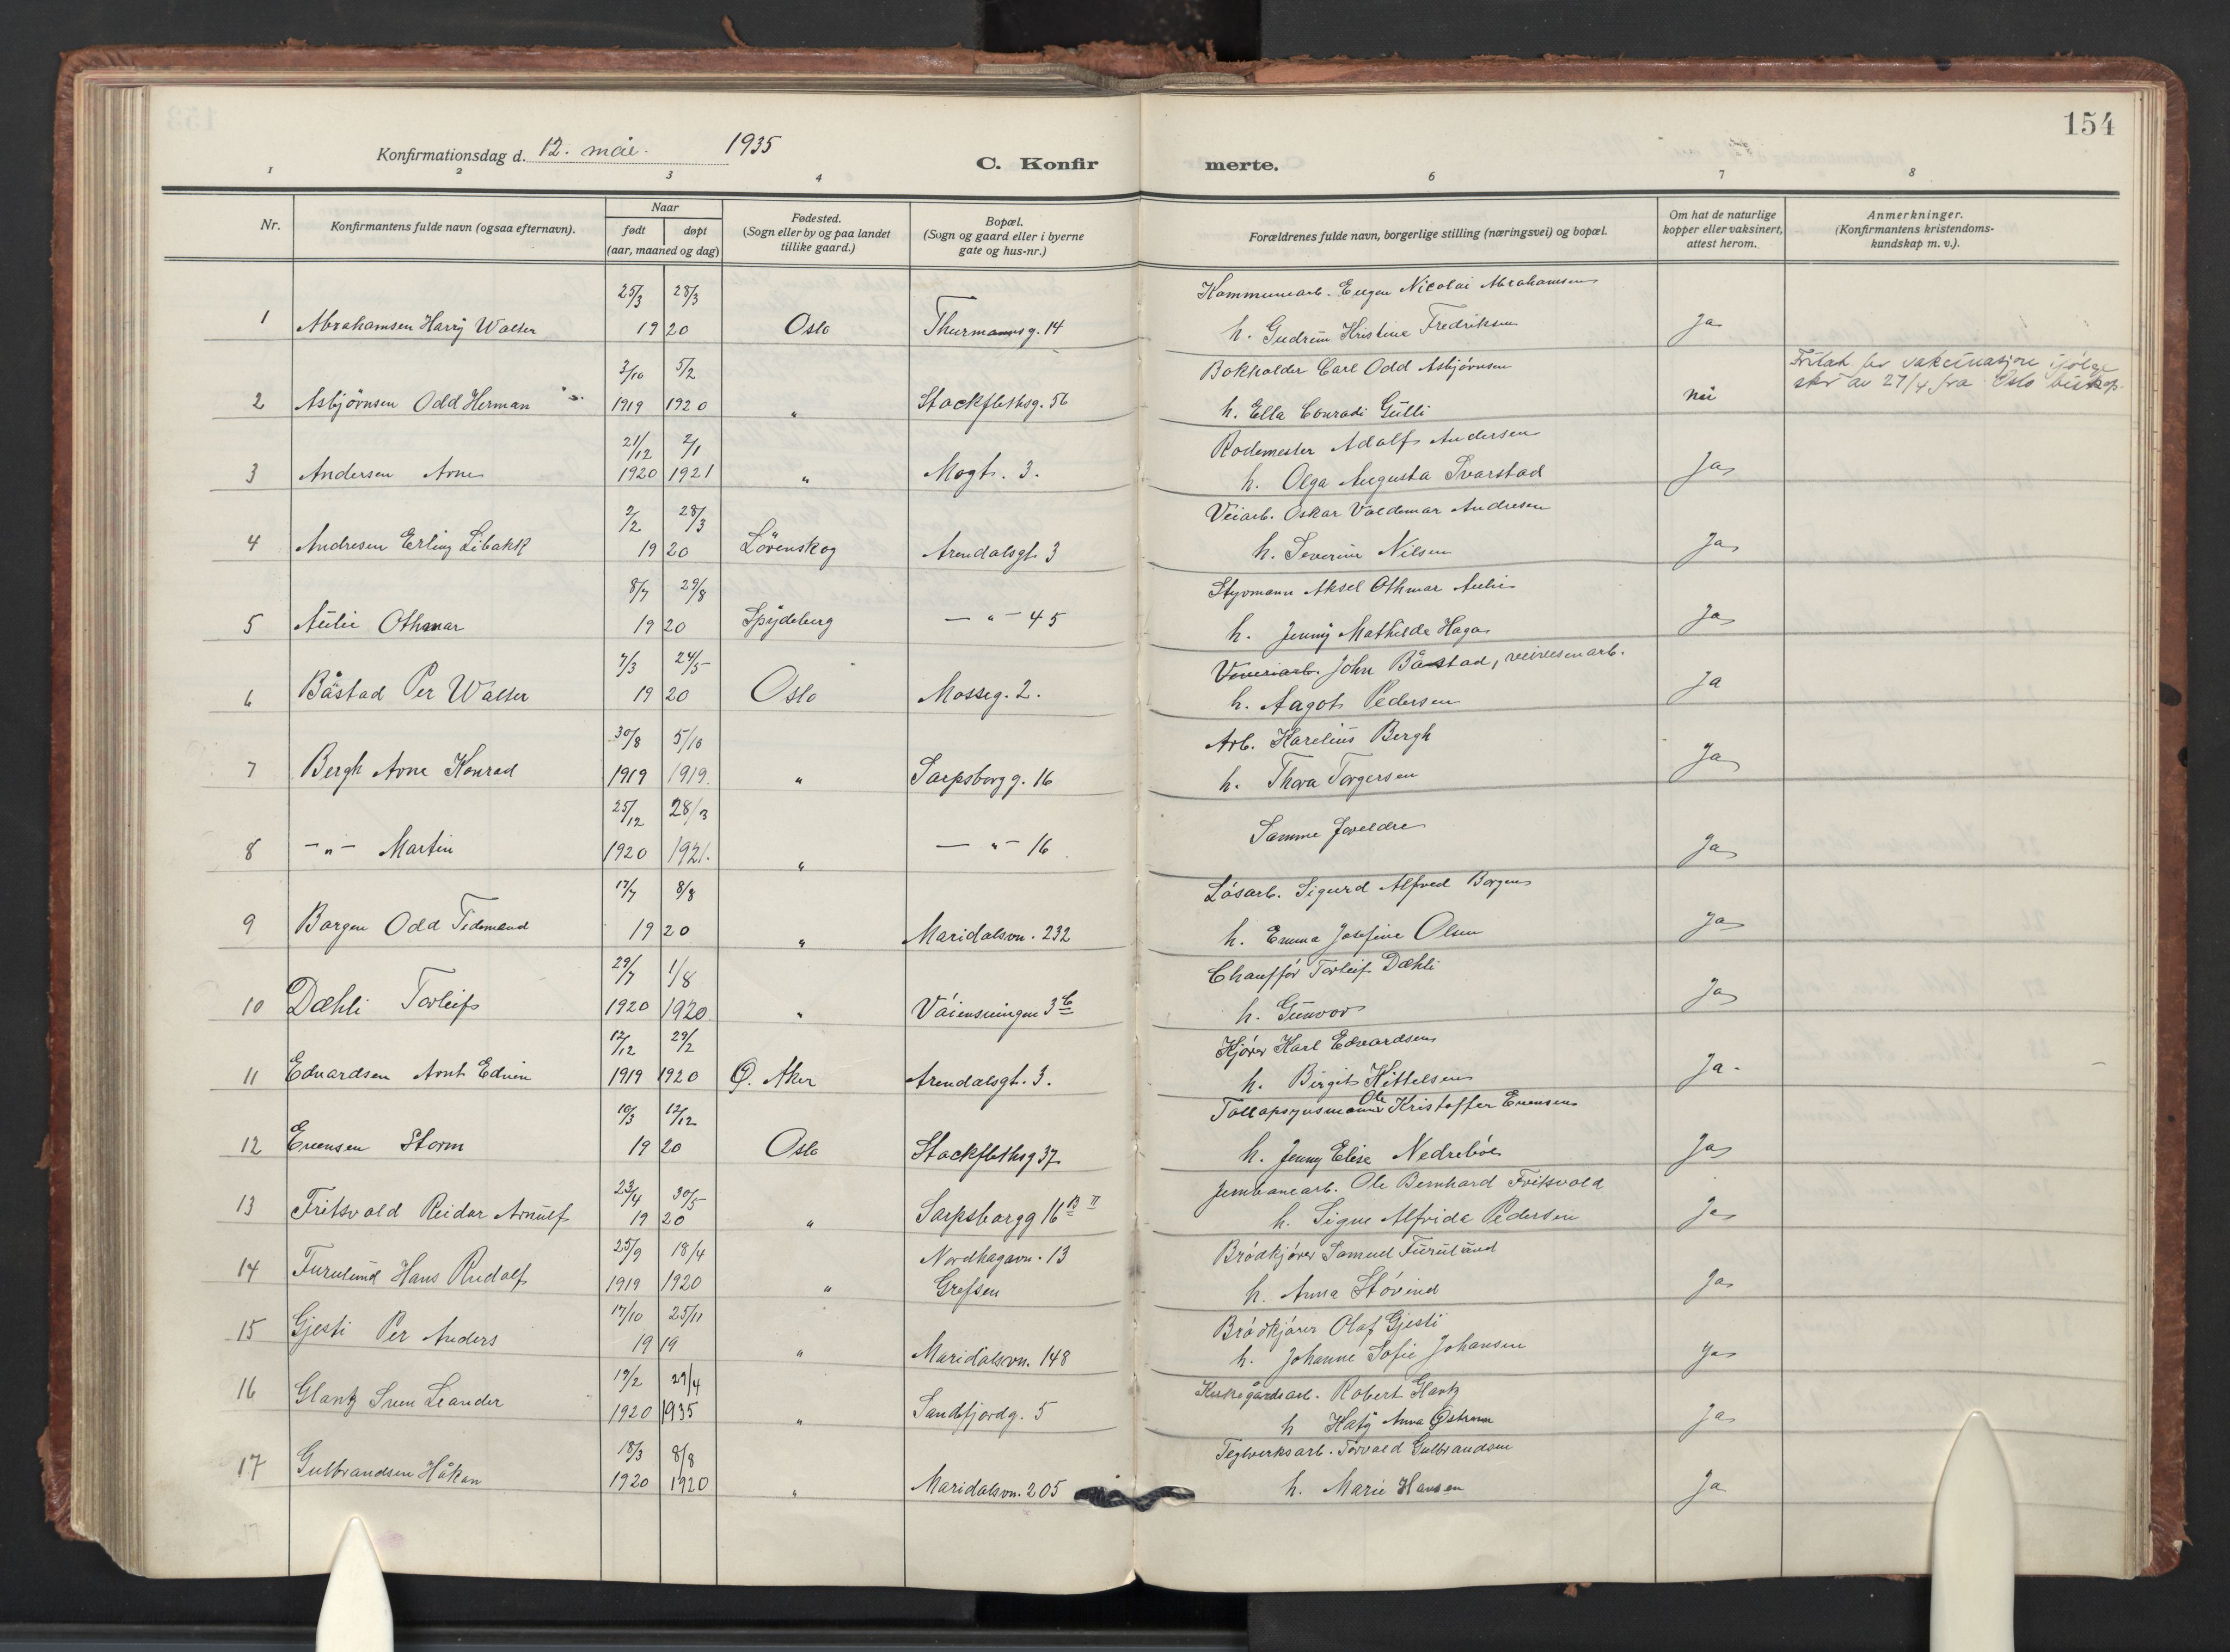 154
Konfirmationsdag d. 12. mai. 1935
C. Konfir merte.
1 2 3 4 6 7 8
Nr.
Konfirmantens fulde navn (ogsaa efternavn).
Naar
født døpt
(aar, maaned og dag)
Fødested.
(Sogn eller by og paa landet
tillike gaard.)
Bopæl.
(Sogn og gaard eller i byerne
gate og hus-nr.)
Forældrenes fulde navn, borgerlige stilling (næringsvei) og bopæl.
Om hat de naturlige
kopper eller vaksinert,
attest herom.
Anmerkninger.
(Konfirmantens kristendoms-
kundskap m. v.).
25/3 28/3 Kommunearb. Eugen Nicolai Abrahamsen
1 Abrahamsen Harry Walter 1920 Oslo Thurmannsg. 14 h. Gudrun Kristine Fredriksen Ja
3/10 5/2 Bokholder Carl Odd Asbjørnsen Fritat for vakcinasjon ifølge
2 Asbjørnsen Odd Herman 1919 1920 " Stockflethsg. 56 h. Ella Conradi Gulli nei skr av 27/4 fra Oslo biskop.
21/12 2/1 Rodemester Adolf Andersen
3 Andersen Arne 1920 1921 " Mogt. 3. h. Olga Augusta Svarstad Ja
2/2 28/3 Veiarb. Oskar Valdemar Andresen
4 Andresen Erling Libakk 1920 Lörenskog Arendalsgt. 3 h. Severine Nilsen Ja
8/7 29/8 Styrmann Aksel Othmar Aulie
5 Aulie Othmar 1920 Spydeberg — " — 45 h. Jenny Mathilde Haga Ja
7/3 24/5 John Båstad, veivesenarb.
6 Båstad Per Walter 1920 Oslo Mosseg. 2. h. Aagot Pedersen Ja
30/8 5/10 Arb. Karelius Bergh
7 Bergh Arne Konrad 1919 1919. " Sarpsborgg. 16 h. Thora Torgersen Ja
25/12 28/3 Samme foreldre
8 —"— Martin 1920 1921. " — " — 16 Ja
17/7 8/8 Løsarb. Sigurd Alfred Borgen
9 Borgen Odd Tidemand 1920 " Maridalsvn. 232 h. Emma Josefine Olsen Ja
29/7 1/8 Chauffør Torleif Dæhli
10 Dæhli Torleif 1920 1920 " Våiensvingen 3 b h. Gunvor Ja
12/12 29/2 Kjører Karl Edvardsen
11 Edvardsen Arnt Edvin 1919 1920 Ø. Aker Arendalsgt. 3. h. Birgit Kittelsen Ja.
10/3 12/12 Tollopsynsmann Ole Kristoffer Evensen
12 Evensen Storm 1920 Oslo Stockflethsg 37 h. Jenny Elise Nedreböe Ja
23/4 30/5 Jernbanearb. Ole Bernhard Fritsvold
13 Fritsvold Reidar Arnulf 1920 " Sarpsborgg 16 B II h. Signe Alfrida Pedersen Ja
25/9 18/4 Nordhagavn. 13 Brödkjører Samuel Furulund
14 Furulund Hans Rudolf 1919 1920 " Grefsen h. Anna Stövind Ja
17/10 23/11 Brödkjører Olaf Gjesti
15 Gjesti Per Anders 1919 " Maridalsvn. 148 h. Johanne Sofie Johansen Ja
19/2 29/4 Kirkegårdsarb. Robert Glantz
16 Glantz Sven Leander 1920 1935 " Sandefjordg. 5 h Katy Anna Östmoen Ja
18/3 8/8 Teglverksarb. Torvald Gulbrandsen
17 Gulbrandsen Håkon 1920 1920 " Maridalsvn. 205 h. Marie Hansen Ja